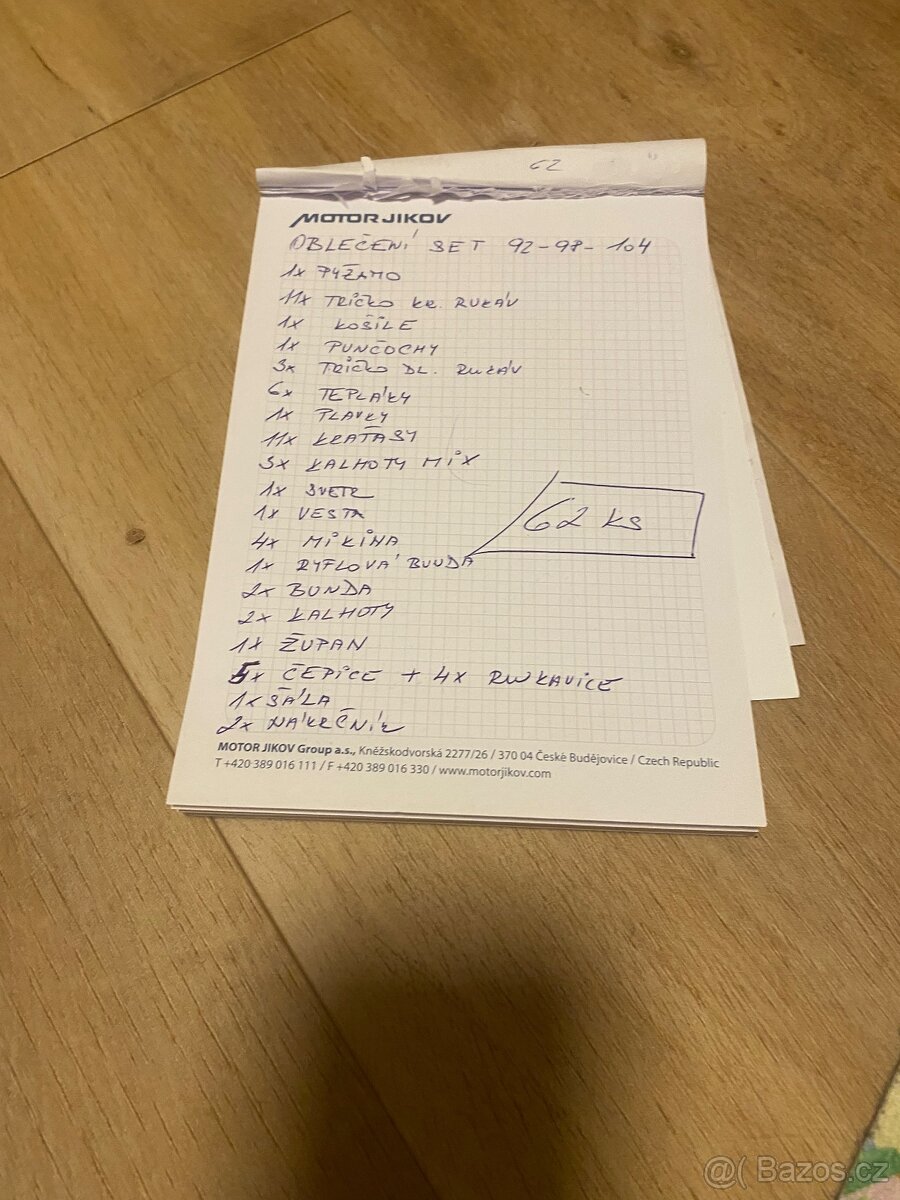 62
MOTOR JIKOV
OBLEČENÍ SET 92-98-104
1x PYŽAMO
11x TRIČKO KR. RUKÁV
1x KOŠILE
1x PUNČOCHY
3x TRIČKO DL. RUKÁV
6x TEPLÁKY
1x PLAVKY
11x KRAŤASY
3x KALHOTY MIX
1x SVETR
1x VESTA
62 ks
4x MIKINA
1x RYFLOVÁ BUNDA
2x BUNDA
2x KALHOTY
1x ŽUPAN
5x ČEPICE + 4x RUKAVICE
1x ŠÁLA
2x NÁKRČNÍK
MOTOR JIKOV Group a.s., Kněžskodvorská 2277/26 / 370 04 České Budějovice / Czech Republic
T +420 389 016 111 / F +420 389 016 330 / www.motorjikov.com
@( Bazos.cz